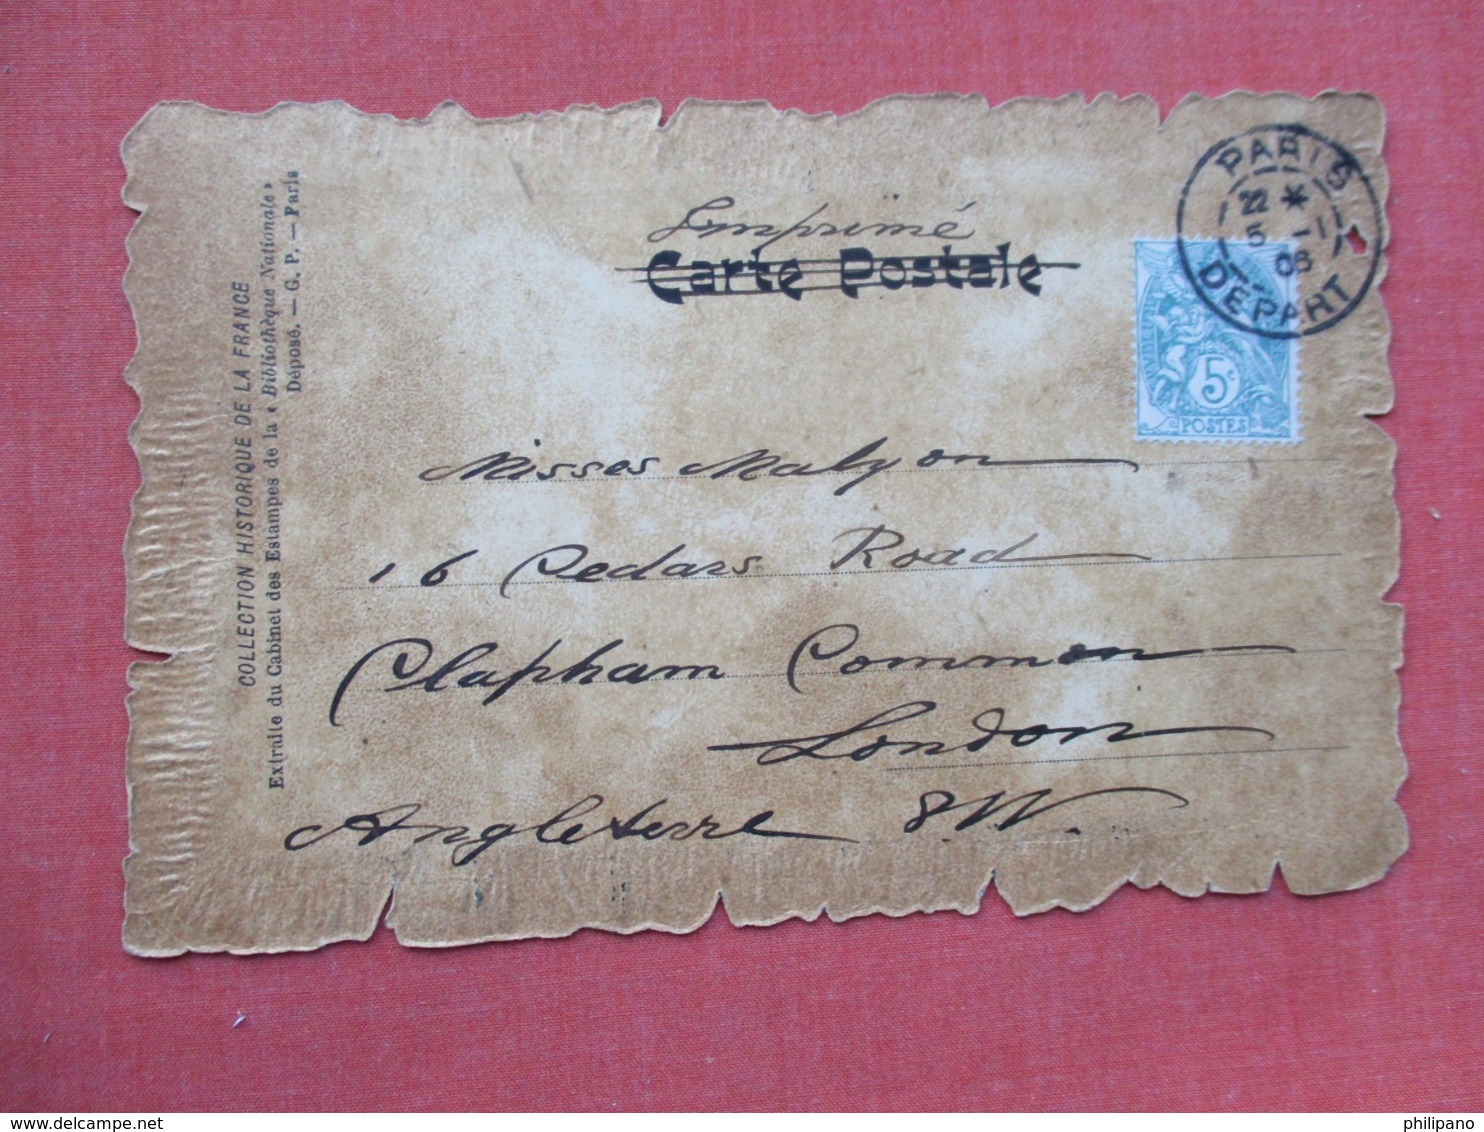 COLLECTION HISTORIQUE DE LA FRANCE
Extraite du Cabinet des Estampes de la « Bibliothèque Nationale »
Déposé. — G. P. — Paris
Imprimé
Carte Postale
PARIS
22 *
5 -11
06
DEPART
5c
POSTES
Misses Malyon
16 Cedars Road
Clapham Common
London
Angleterre SW.
© www.delcampe.net
philipano